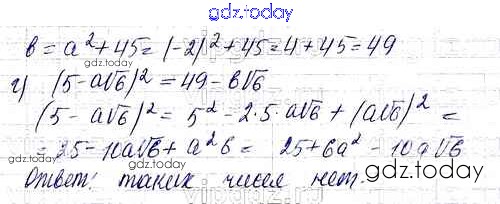 gdz.today
в = a² + 45 = (-2)² + 45 = 4 + 45 = 49
г) (5 - a√6)² = 49 - в√6
(5 - a√6)² = 5² - 2·5·a√6 + (a√6)² =
= 25 - 10a√6 + a²6 = 25 + 6a² - 10a√6
Ответ: таких чисел нет.
gdz.today